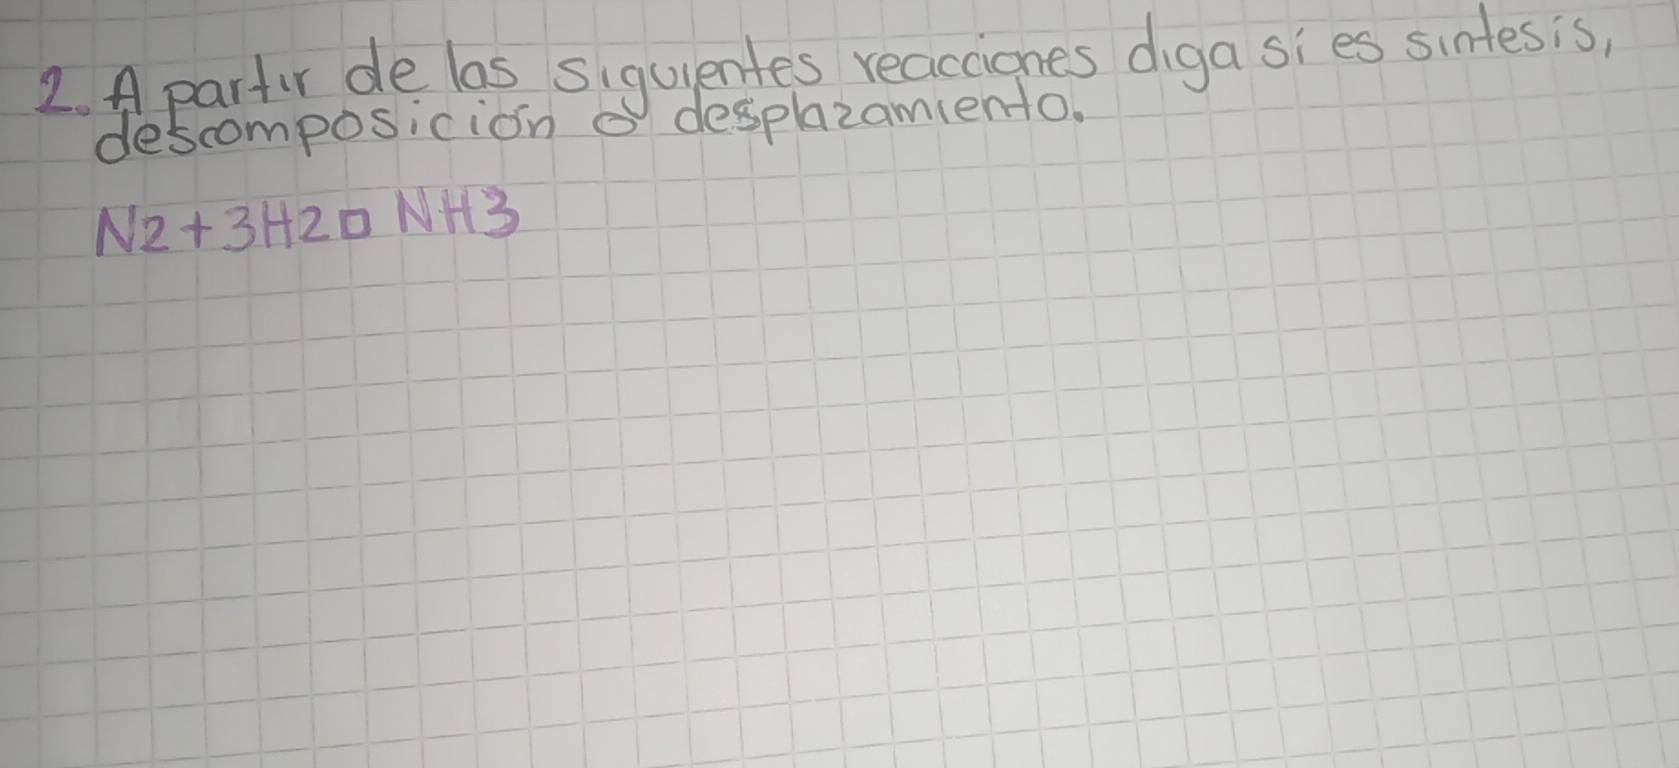 2. A partir de las siguientes reacciones diga si es sintesis,
descomposición o desplazamiento.
N2+3H2□ NH3